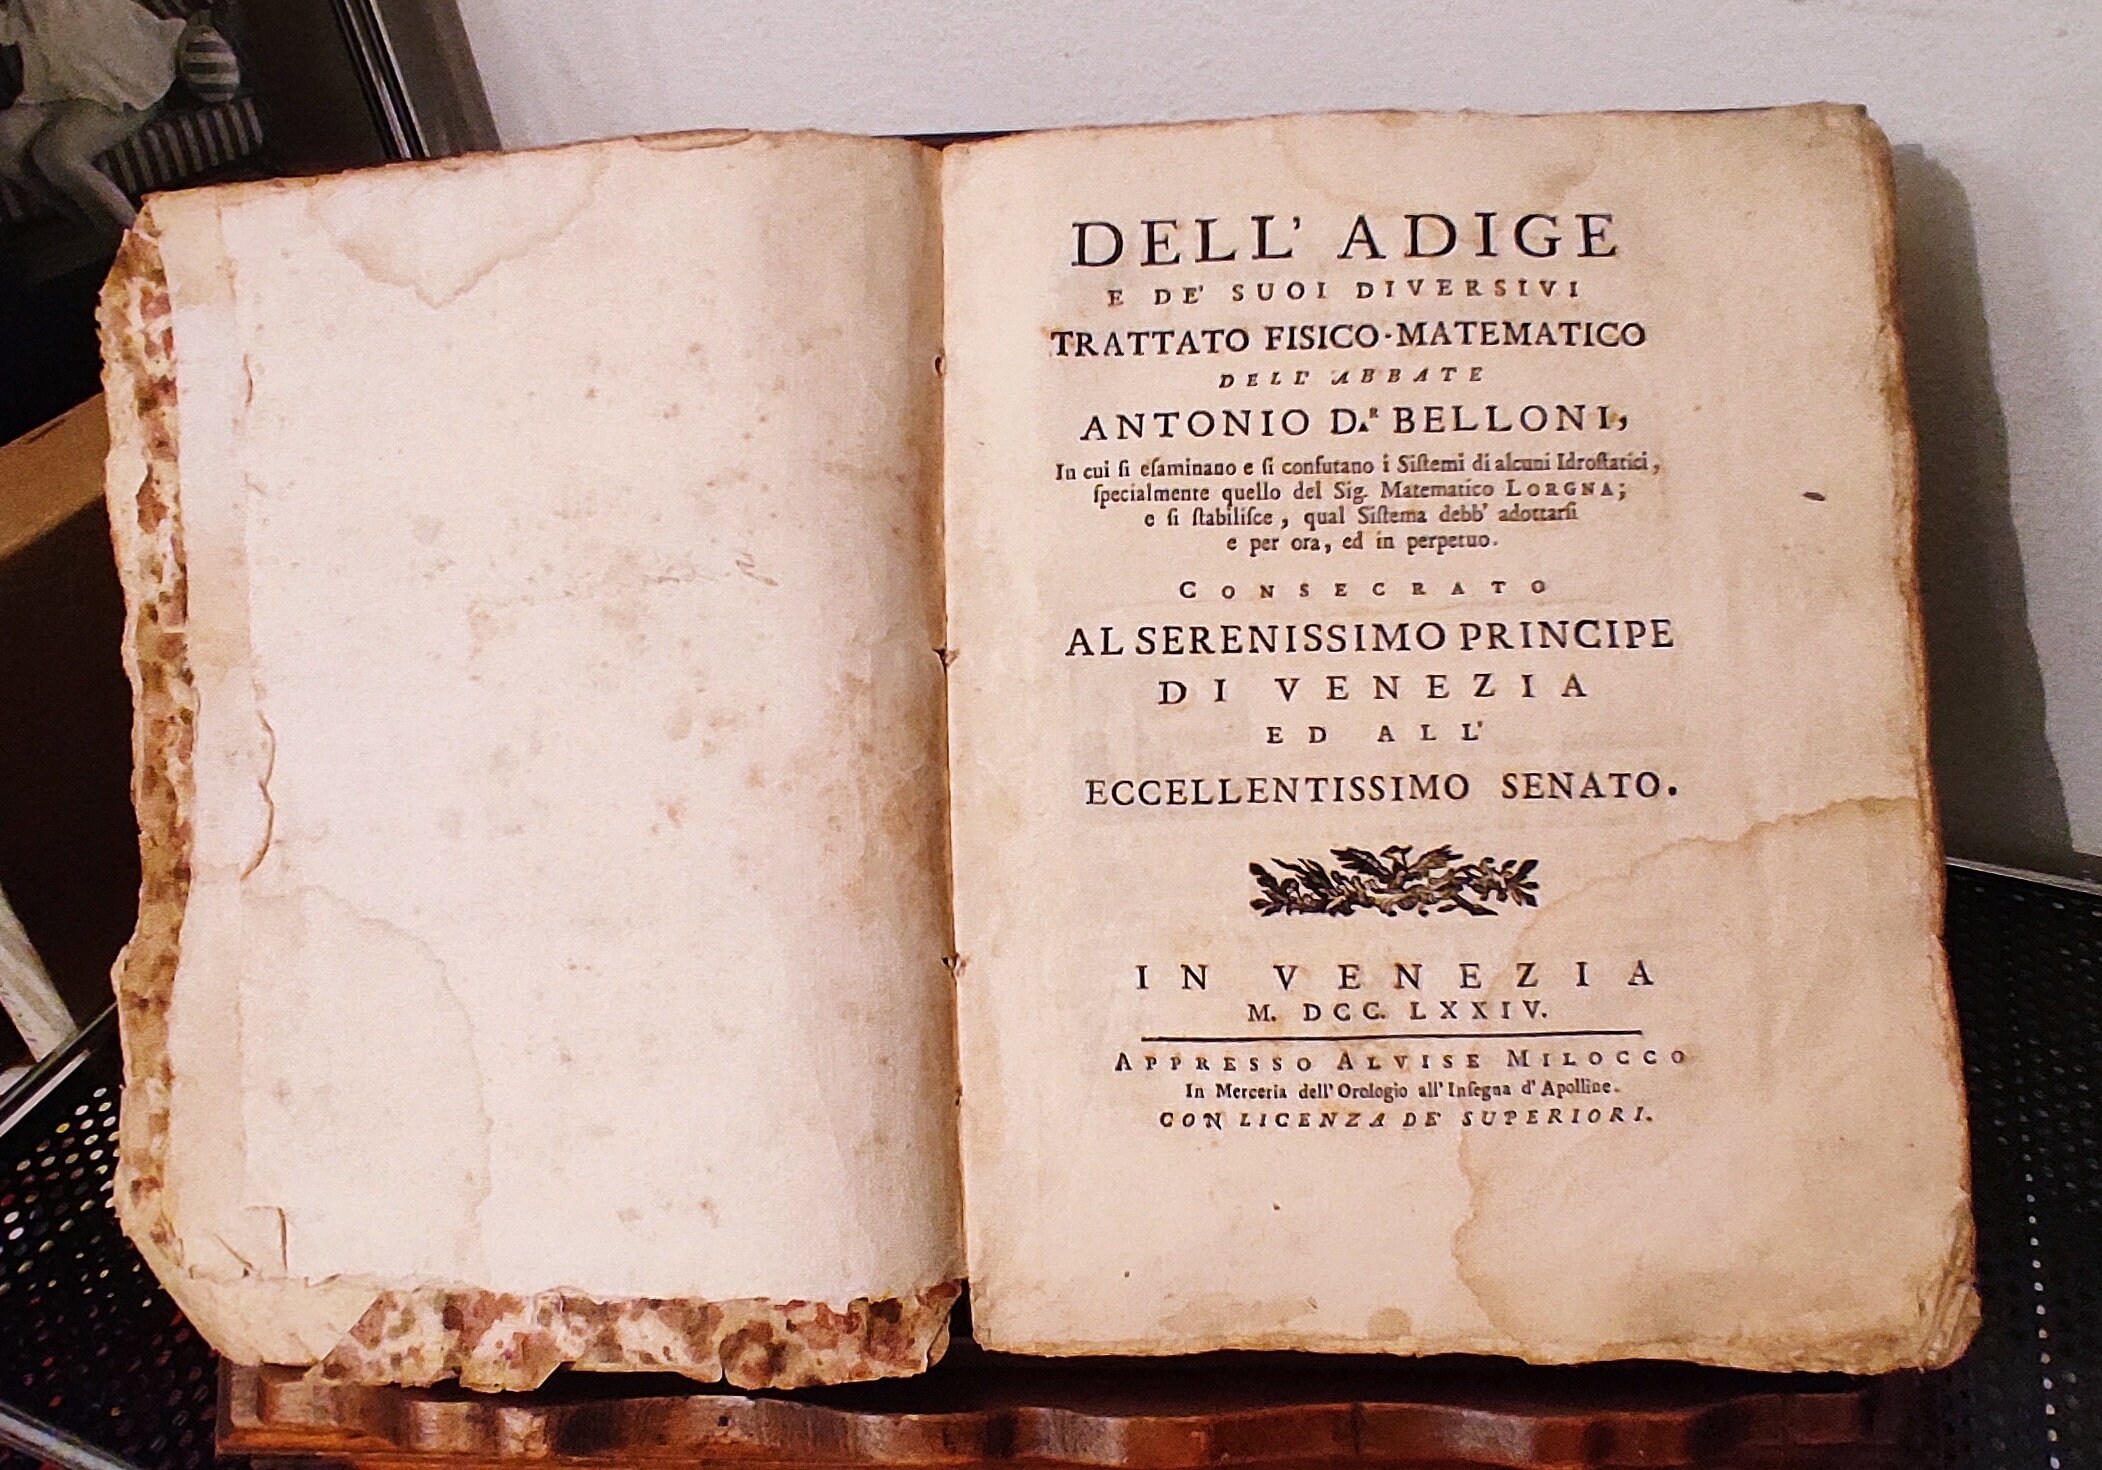 DELL' ADIGE
E DE' SUOI DIVERSIVI
TRATTATO FISICO-MATEMATICO
DELL' ABBATE
ANTONIO D.R BELLONI,
In cui ſi eſaminano e ſi confutano i Siſtemi di alcuni Idroſtatici,
ſpecialmente quello del Sig. Matematico LORGNA;
e ſi ſtabiliſce, qual Siſtema debb' adottarſi
e per ora, ed in perpetuo.
CONSECRATO
AL SERENISSIMO PRINCIPE
DI VENEZIA
ED ALL'
ECCELLENTISSIMO SENATO.
IN VENEZIA
M. DCC. LXXIV.
APPRESSO ALVISE MILOCCO
In Merceria dell' Orologio all' Inſegna d' Apolline.
CON LICENZA DE' SUPERIORI.